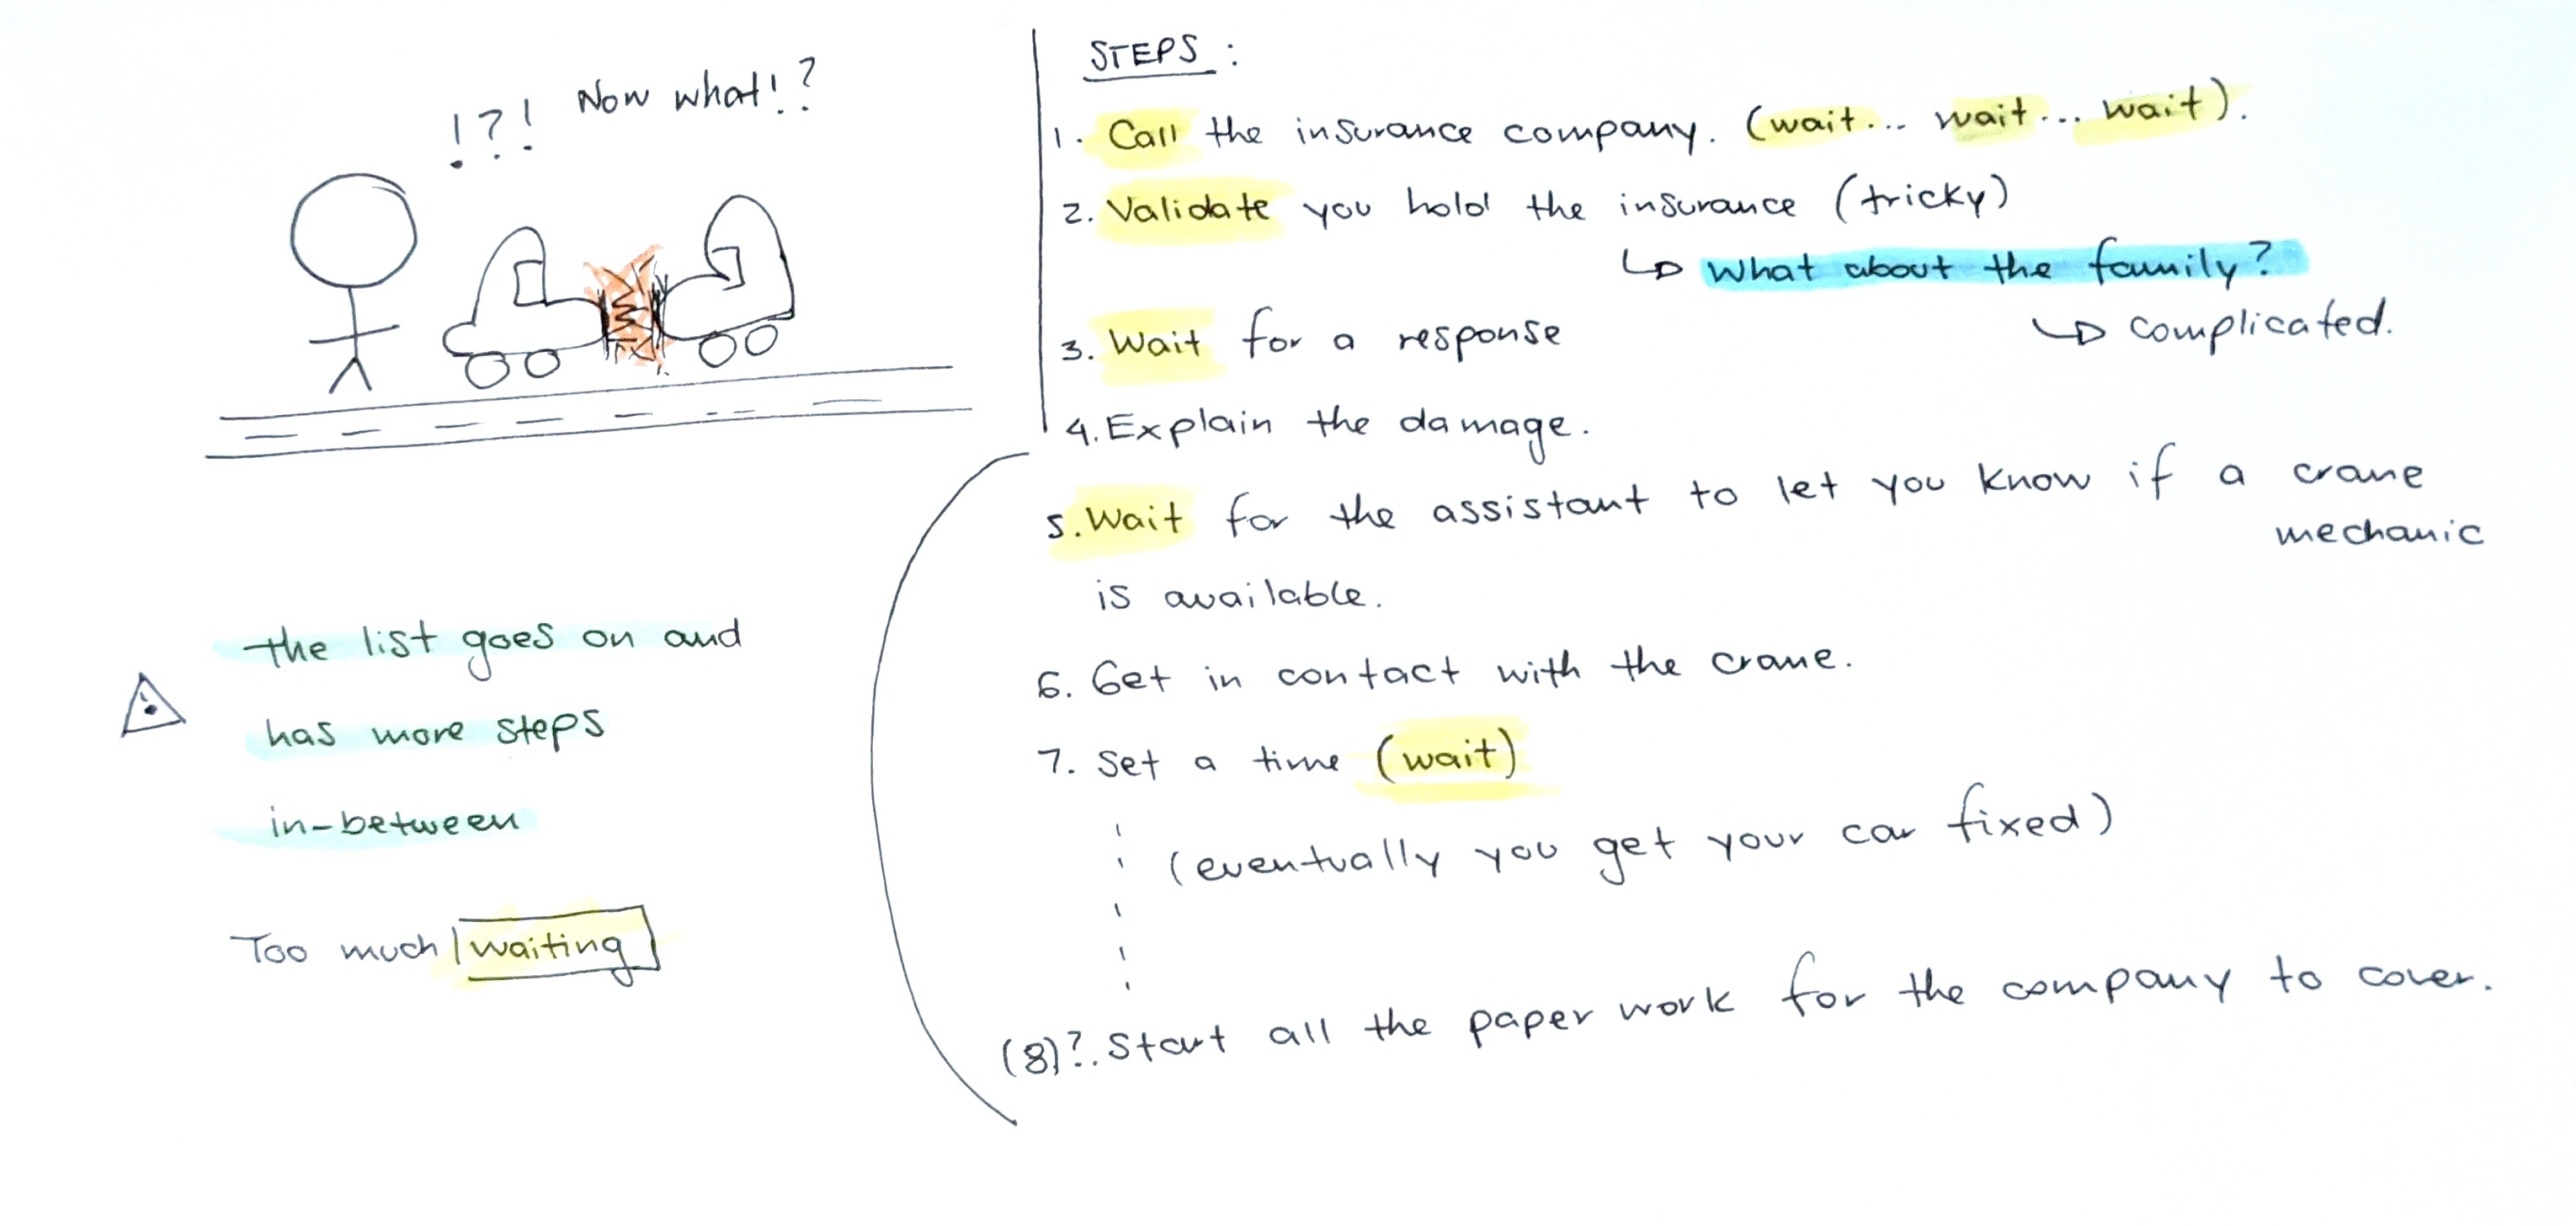 !?! Now what!?
STEPS :
1. Call the insurance company. (wait... wait... wait).
2. Validate you hold the insurance (tricky)
↳ what about the family?
↳ complicated.
3. Wait for a response
4. Explain the damage.
5. Wait for the assistant to let you know if a crane
mechanic
is available.
6. Get in contact with the crane.
7. Set a time (wait)
(eventually you get your car fixed)
(8)?. Start all the paper work for the company to cover.
the list goes on and
has more steps
in-between
Too much waiting